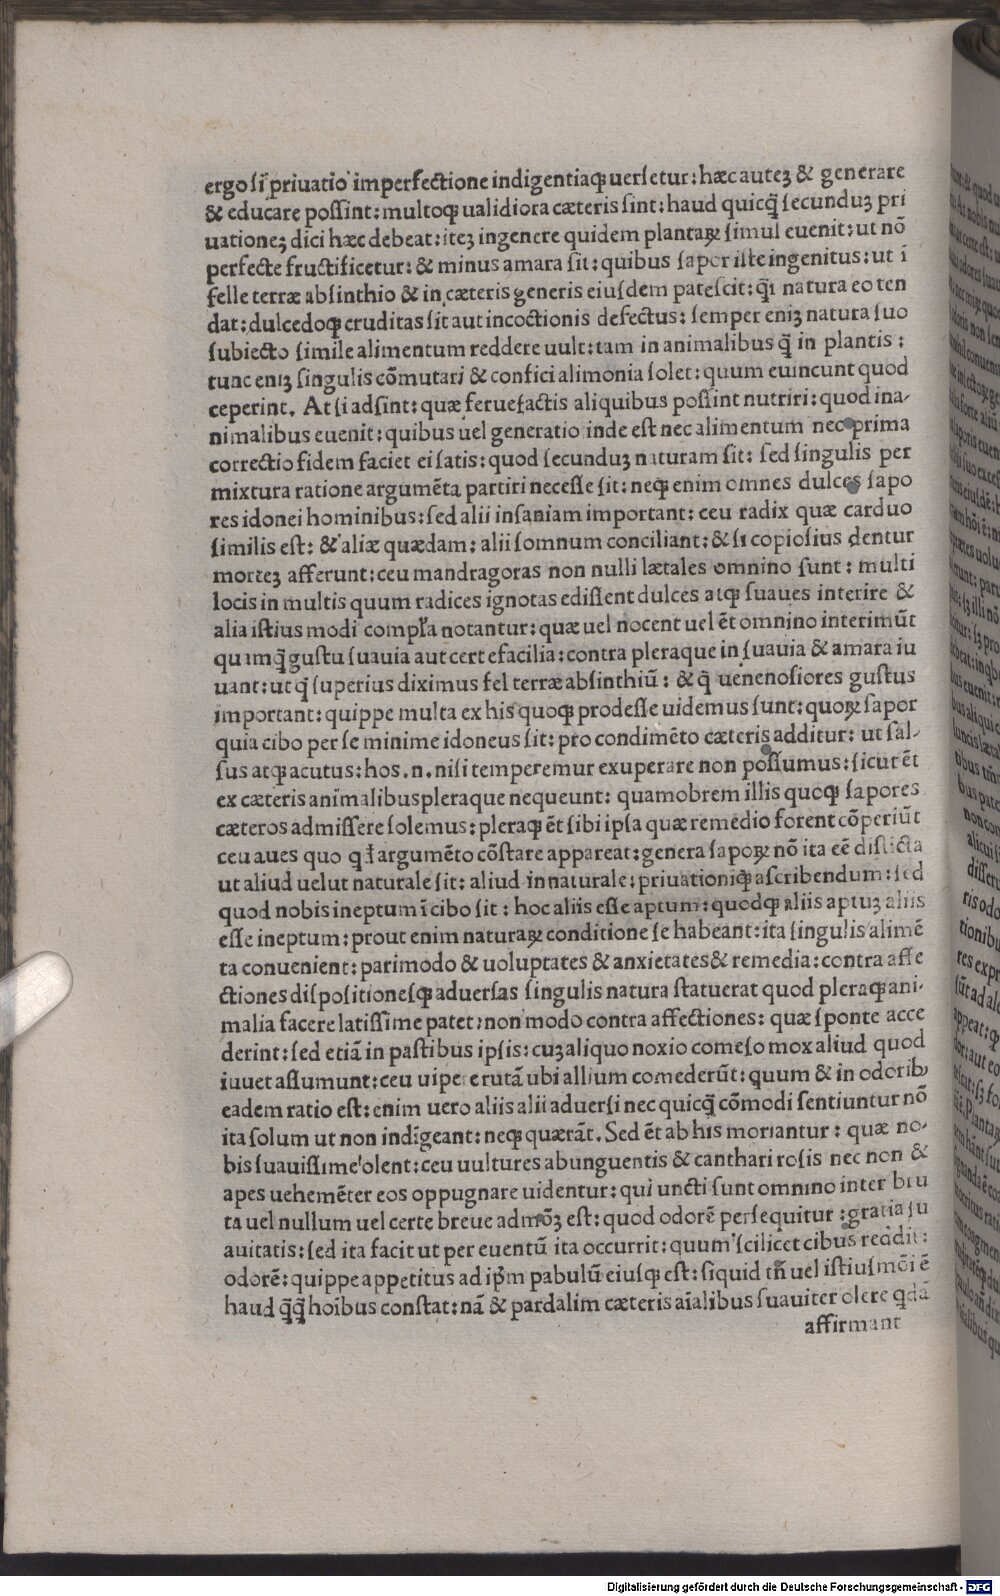 ergo ſi priuatio imperfectione indigentiaqꝫ uerſetur: hæc autez & generare
& educare poſſint: multoqꝫ ualidiora cæteris ſint: haud quicq̄ ſecunduꝫ pri
uationeꝫ dici hæc debeat: iteꝫ ingenere quidem plantaꝝ ſimul euenit: ut nō
perfecte fructificetur: & minus amara ſit: quibus ſapor iſte ingenitus: ut ī
felle terræ abſinthio & in cæteris generis eiuſdem pateſcit: q̄ in natura eo ten
dat: dulcedoqꝫ cruditas ſit aut incoctionis defectus: ſemper eniꝫ natura ſuo
ſubiecto ſimile alimentum reddere uult: tam in animalibus q̄ in plantis:
tunc eniꝫ ſingulis cōmutari & confici alimonia ſolet: quum euincunt quod
ceperint. At ſi adſint: quæ feruefactis aliquibus poſſint nutriri: quod ina-
nimalibus euenit: quibus uel generatio inde eſt nec alimentum nec prima
correctio fidem faciet ei ſatis: quod ſecunduꝫ naturam ſit: ſed ſingulis per
mixtura ratione argumēta partiri neceſſe ſit: neqꝫ enim omnes dulces ſapo
res idonei hominibus: ſed alii inſaniam important: ceu radix quæ carduo
ſimilis eſt: & aliæ quædam: alii ſomnum conciliant: & ſi copioſius dentur
morteꝫ afferunt: ceu mandragoras non nulli lætales omnino ſunt: multi
locis in multis quum radices ignotas ediſſent dulces atqꝫ ſuaues interire &
alia iſtius modi compl'a notantur: quæ uel nocent uel ēt omnino interimūt
quamq̄ guſtu ſuauia aut certe facilia: contra pleraque in ſuauia & amara iu
uant: ut q̄ ſuperius diximus fel terræ abſinthiū: & q̄ uenenoſiores guſtus
important: quippe multa ex his quoqꝫ prodeſſe uidemus ſunt: quoꝝ ſapor
quia cibo per ſe minime idoneus ſit: pro condimēto cæteris additur: ut ſal-
ſus atqꝫ acutus: hos .n. niſi temperemur exuperare non poſſumus: ſicut ēt
ex cæteris animalibus pleraque nequeunt: quamobrem illis quoqꝫ ſapores
cæteros admiſſere ſolemus: pleraqꝫ ēt ſibi ipſa quæ remedio forent cōperiūt
ceu aues quo argumēto cōſtare appareat: genera ſapoꝝ nō ita eē diſticta
ut aliud uelut naturale ſit: aliud innaturale: priuationiqꝫ aſcribendum: ſed
quod nobis ineptum ī cibo ſit: hoc aliis eſſe aptum: quodqꝫ aliis aptuꝫ aliis
eſſe ineptum: prout enim naturaꝝ conditione ſe habeant: ita ſingulis alimē
ta conuenient: parimodo & uoluptates & anxietates & remedia: contra affe
ctiones diſpoſitioneſqꝫ aduerſas ſingulis natura ſtatuerat quod pleraqꝫ ani-
malia facere latiſſime patet: non modo contra affectiones: quæ ſponte acce
derint: ſed etiā in paſtibus ipſis: cuꝫ aliquo noxio comeſo mox aliud quod
iuuet aſſumunt: ceu uiperæ rutā ubi allium comederūt: quum & in odorib;
eadem ratio eſt: enim uero aliis alii aduerſi nec quicq̄ cōmodi ſentiuntur nō
ita ſolum ut non indigeant: neqꝫ quærāt. Sed ēt ab his moriantur: quæ no-
bis ſuauiſſime olent: ceu uultures ab unguentis & canthari roſis nec non &
apes uehemēter eos oppugnare uidentur: qui uncti ſunt omnino inter bru
ta uel nullum uel certe breue admōꝫ eſt: quod odorē perſequitur: gratia ſu
auitatis: ſed ita facit ut per euentū ita occurrit: quum ſcilicet cibus reddit:
odorē: quippe appetitus ad ip̄m pabulū eiuſqꝫ eſt: ſi quid tn̄ uel iſtiuſmōi ē
haud q̄q̄ hoībus conſtat: nā & pardalim cæteris aīalibus ſuauiter olere q̄dā
affirmant
Digitalisierung gefördert durch die Deutsche Forschungsgemeinschaft - DFG